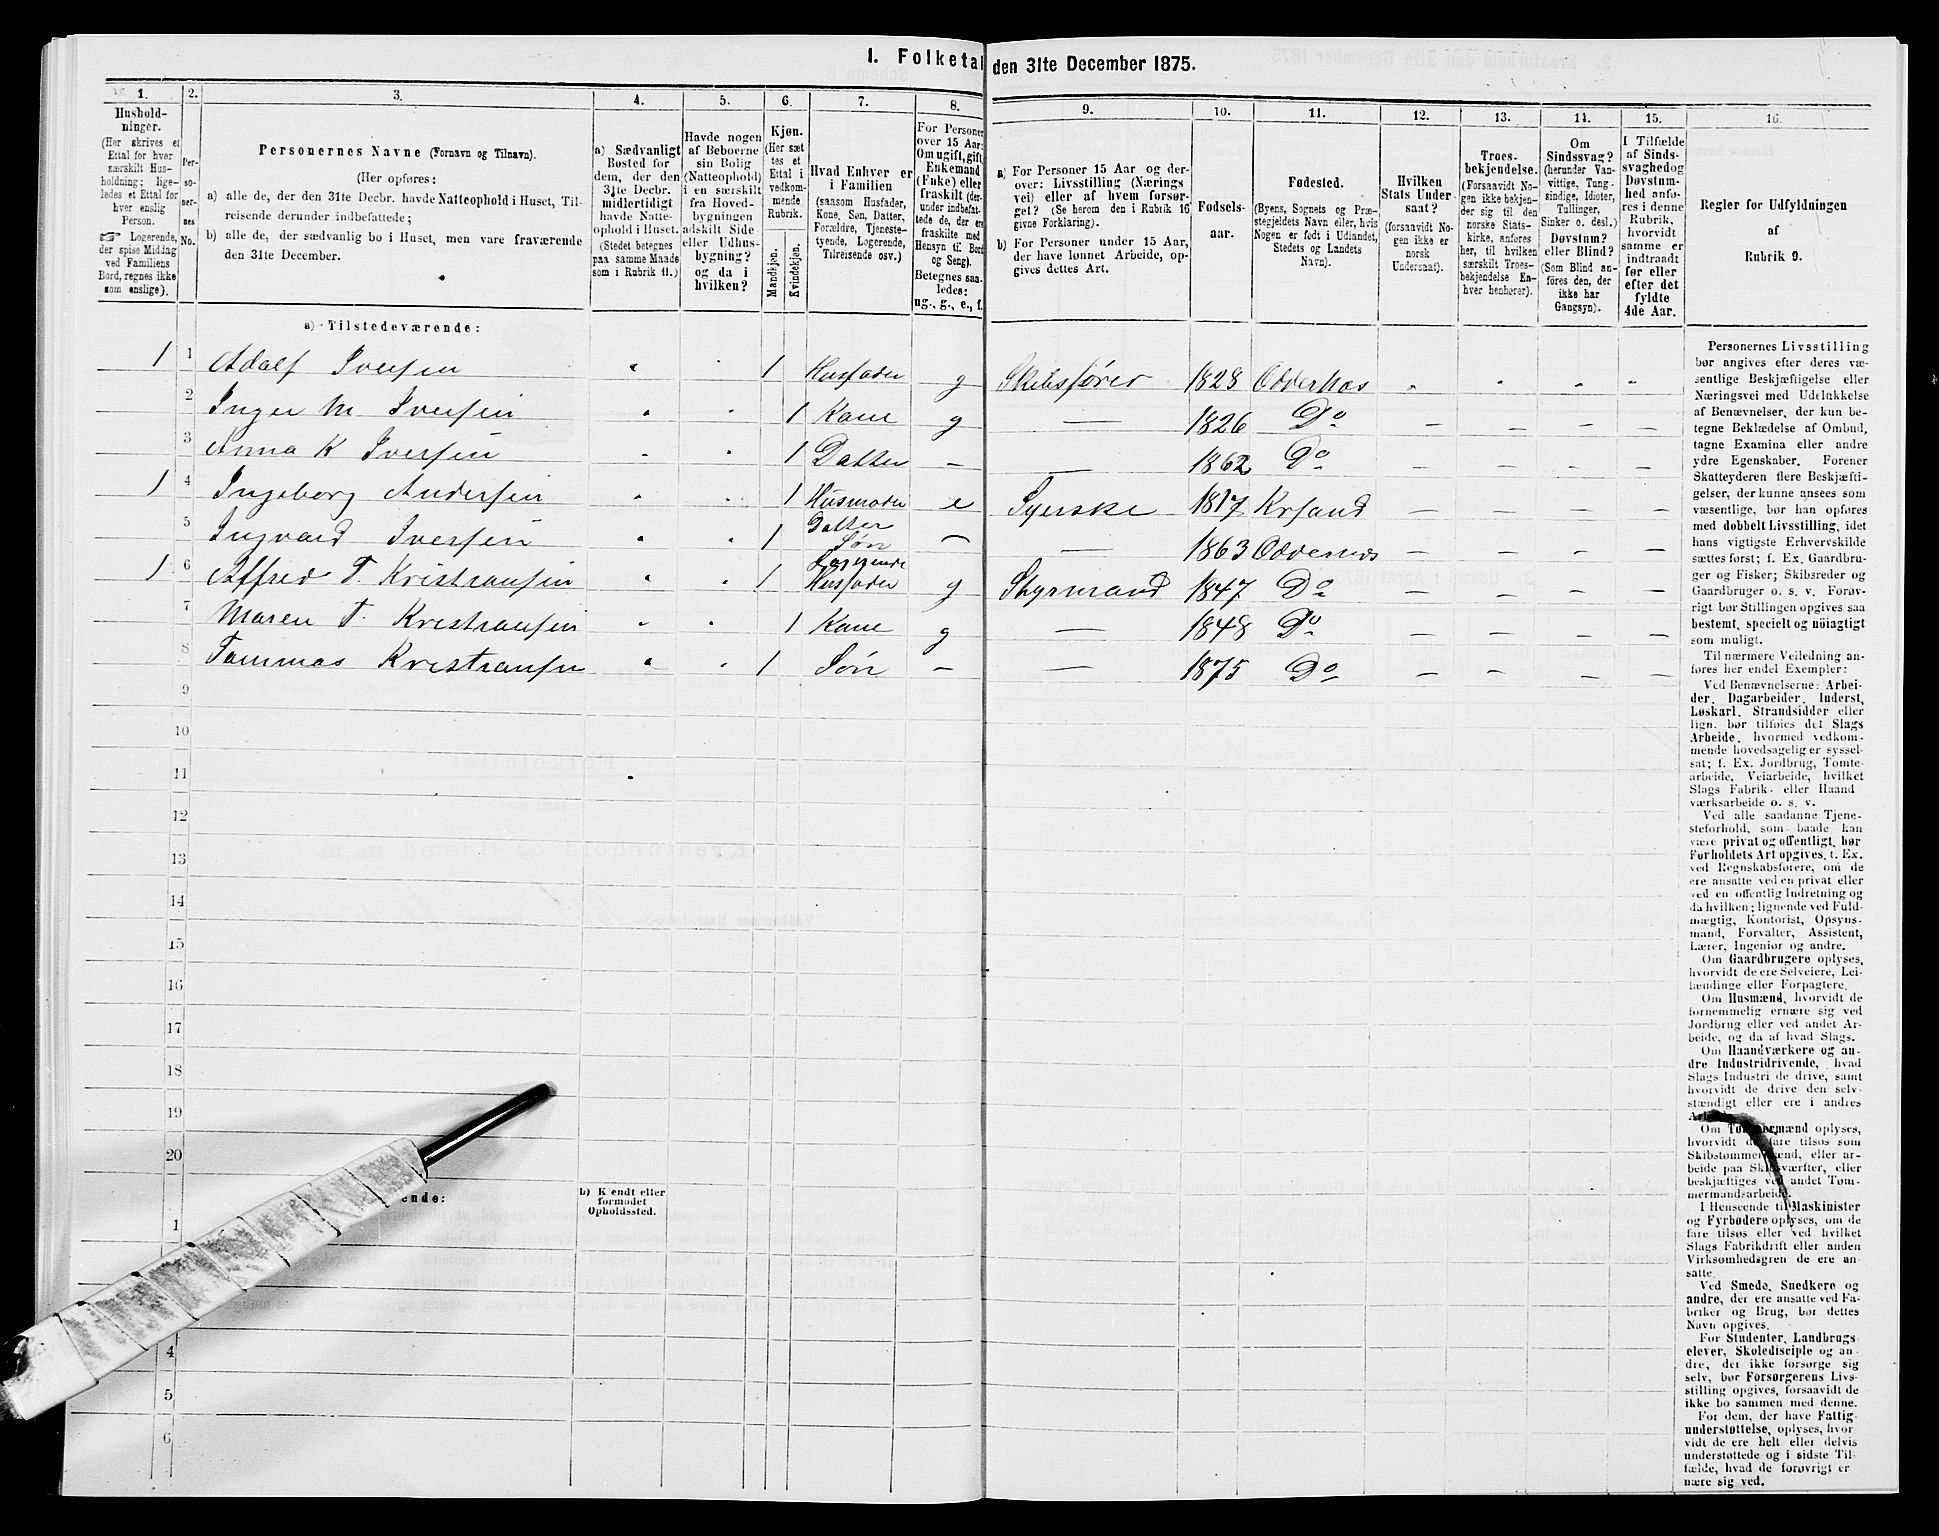 I. Folketal den 31te December 1875.
1. 2. 3. 4. 5. 6. 7. 8. 9. 10. 11. 12. 13. 14. 15. 16.
Hushold-
ninger.
(Her skrives et
Ettal for hver
særskilt Hus-
holdning; lige-
ledes et Ettal for
hver enslig
Person.
☞ Logerende,
der spise Middag
ved Familiens
Bord, regnes ikke
som enslige).
Per-
so-
ner-
nes
No.
Personernes Navne (Fornavn og Tilnavn).
(Her opføres:
a) alle de, der den 31te Decbr. havde Natteophold i Huset, Til-
reisende derunder indbefattede;
b) alle de, der sædvanlig bo i Huset, men vare fraværende
den 31te December.
a) Sædvanligt
Bosted for
dem, der den
31te Decbr.
midlertidigt
havde Natte-
ophold i Huset.
(Stedet betegnes
paa samme Maade
som i Rubrik 11.)
Havde nogen
af Beboerne
sin Bolig
(Natteophold)
i en særskilt
fra Hoved-
bygningen
adskilt Side
eller Udhus-
bygning?
og da i
hvilken?
Kjøn.
(Her sæt
tes et
Ettal i
vedkom-
mende
Rubrik.
Mandkjøn.
Kvindekjøn.
Hvad Enhver er
i Familien
(saasom Husfader,
Kone, Søn, Datter,
Forældre, Tjeneste-
tyende, Logerende,
Tilreisende osv.)
For Personer
over 15 Aar:
Om ugift, gift,
Enkemand
(Enke) eller
fraskilt (der-
under indbefat-
tede de, der ere
fraskilte med
Hensyn til Bord
og Seng).
Betegnes saa-
ledes:
ug., g., e., f.
a) For Personer 15 Aar og der-
over: Livsstilling (Nærings
vei) eller af hvem forsør-
get? (Se herom den i Rubrik 16
givne Forklaring).
b) For Personer under 15 Aar,
der have lønnet Arbeide, op-
gives dettes Art.
Fødsels-
aar.
Fødested.
(Byens, Sognets og Præ-
stegjeldets Navn eller, hvis
Nogen er født i Udlandet,
Stedets og Landets
Navn).
Hvilken
Stats Under
saat?
(forsaavidt No-
gen ikke er
norsk
Undersaat).
Troes-
bekjendelse.
(Forsaavidt No-
gen ikke bekjen-
der sig til den
norske Stats-
kirke, anføres
her, til hvilken
særskilt Troes-
bekjendelse En-
hver henhører).
Om
Sindssvag?
(herunder Van-
vittige, Tung-
sindige, Idioter,
Tullinger,
Sinker o. desl.)
Døvstum?
eller Blind?
(Som Blind an-
føres den, der
ikke har
Gangsyn).
I Tilfælde
af Sinds-
svaghed og
Døvstum-
hed anfø-
res i denne
Rubrik,
hvorvidt
samme er
indtraadt
før eller
efter det
fyldte
4de Aar.
Regler for Udfyldningen
af
Rubrik 9.
a) Tilstedeværende:
1 1 Adolf Iversen 1 Husfader g Skibsfører 1828 Oddernæs
2 Inger M Iversen 1 Kone g — 1826 Do — — — —
3 Anna K Iversen 1 Datter — — 1862 Do — — — —
1 4 Ingeborg Andersen 1 Husmoder e Syerske 1817 Krsand — — — —
5 Ingvald Iversen 1 Datter Søn — — 1863 Oddernæs — — — —
1 6 Alfred T. Kristiansen 1 Logerende Husfader g Styrmand 1847 Do — — — —
7 Maren T. Kristiansen 1 Kone g — 1848 Do — — — —
8 Tommas Kristiansen 1 Søn — — 1875 Do — — — —
9
10
11
12
13
14
15
16
17
18
19
20
ende:
b) Kjendt eller
formodet
Opholdssted.
1
4
5
6
Personernes Livsstilling
bør angives efter deres væ-
sentlige Beskjæftigelse eller
Næringsvei med Udelukkelse
af Benævnelser, der kun be-
tegne Beklædelse af Ombud,
tagne Examina eller andre
ydre Egenskaber. Forener
Skatteyderen flere Beskjæfti-
gelser, der kunne ansees som
væsentlige, bør han opføres
med dobbelt Livsstilling, idet
hans vigtigste Erhvervskilde
sættes først; f. Ex. Gaardbru-
ger og Fisker; Skibsreder og
Gaardbruger o. s. v. Forøv-
rigt bør Stillingen opgives saa
bestemt, specielt og nöiagtigt
som muligt.
Til nærmere Veiledning an-
føres her endel Exempler:
Ved Benævnelserne: Arbei-
der, Dagarbeider, Inderst,
Løskarl, Strandsidder eller
lign. bør tilføies det Slags
Arbeide, hvormed vedkom-
mende hovedsagelig er syssel-
sat; f. Ex. Jordbrug, Tomte-
arbeide, Veiarbeide, hvilket
Slags Fabrik- eller Haand
værksarbeide o. s. v.
Ved alle saadanne Tjene-
steforhold, som baade kan
være privat og offentligt, bør
Forholdets Art opgives, f. Ex.
ved Regnskabsførere, om de
ere ansatte ved en privat eller
ved en offentlig Indretning og
da hvilken; lignende ved Fuld-
mægtig, Kontorist, Opsyns-
mand, Forvalter, Assistent,
Lærer, Ingeniør og andre.
Om Gaardbrugere oplyses,
hvorvidt de ere Selveiere, Lei-
lændinge eller Forpagtere.
Om Husmænd, hvorvidt de
fornemmelig ernære sig ved
Jordbrug eller ved andet Ar-
beide, og da af hvad Slags.
Om Haandværkere og an-
dre Industridrivende, hvad
Slags Industri de drive, samt
hvorvidt de drive den selv-
stændigt eller ere i andres
Arbeide.
Om Tømmermænd oplyses,
hvorvidt de fare tilsøs som
Skibstømmermænd, eller ar-
beide paa Skibsværfter, eller
beskjæftiges ved andet Tøm-
mermandsarbeide.
I Henseende til Maskinister
og Fyrbødere oplyses, om de
fare tilsøs eller ved hvilket
Slags Fabrikdrift eller anden
Virksomhedsgren de ere an-
satte.
Ved Smede, Snedkere og
andre, der ere ansatte ved Fa-
briker og Brug, bør dettes
Navn opgives.
For Studenter, Landbrugs
elever, Skoledisciple og an-
dre, der ikke forsørge sig
selv, bør Forsørgerens Livs-
stilling opgives, forsaavidt de
ikke bo sammen med denne.
For dem, der have Fattig-
understøttelse, oplyses, hvor
vidt de ere helt eller delvis
understøttede og i sidste Til-
fælde, hvad de forøvrigt er
nære sig ved.